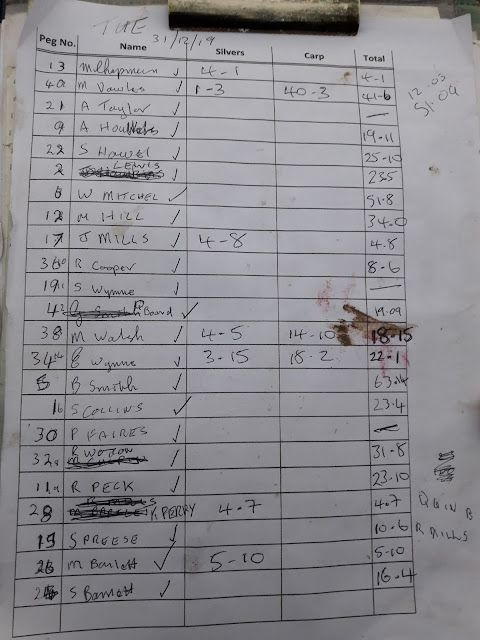 TUE 31/12/19
Peg No. Name Silvers Carp Total
13 M Chapman 4-1 4-1
40 M Vowles 1-3 40-3 41-6
12.05
21 A Taylor —
51.09
9 A 19-11
22 S Howel 25-10
2 LEWIS 23.5
6 W MITCHEL 51.8
12 M HILL 34.0
17 J MILLS 4-8 4.8
36 R Cooper 8-6
19 S Wynne —
42 P Board 19-09
38 M Walsh 4-5 14-10 18-15
34 G Wynne 3-15 18-2 22-1
5 B Smith 63.14
16 S COLLINS 23-4
30 P FAIRES —
32 R WOTTON 31-8
11a R PECK 23-10
28 K PERRY 4.7 4.7
19 S PREESE 10.6 R MILLS
26 M Barlett 5-10 5-10
S Barrlett 16-4